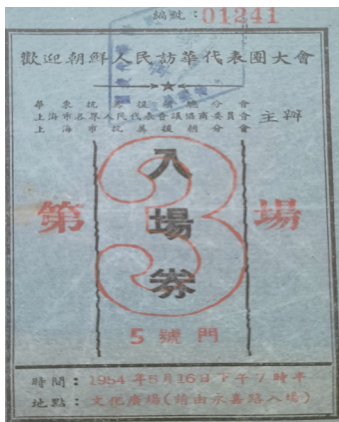 編號：01241
歡迎朝鮮人民訪華代表團大會
華東抗美援朝總分會
上海市各界人民代表會議協商委員會 主辦
上海市抗美援朝分會
第3場
入場券
5號門
時間：1954年5月16日下午7時半
地點：文化廣場(請由永嘉路入場)